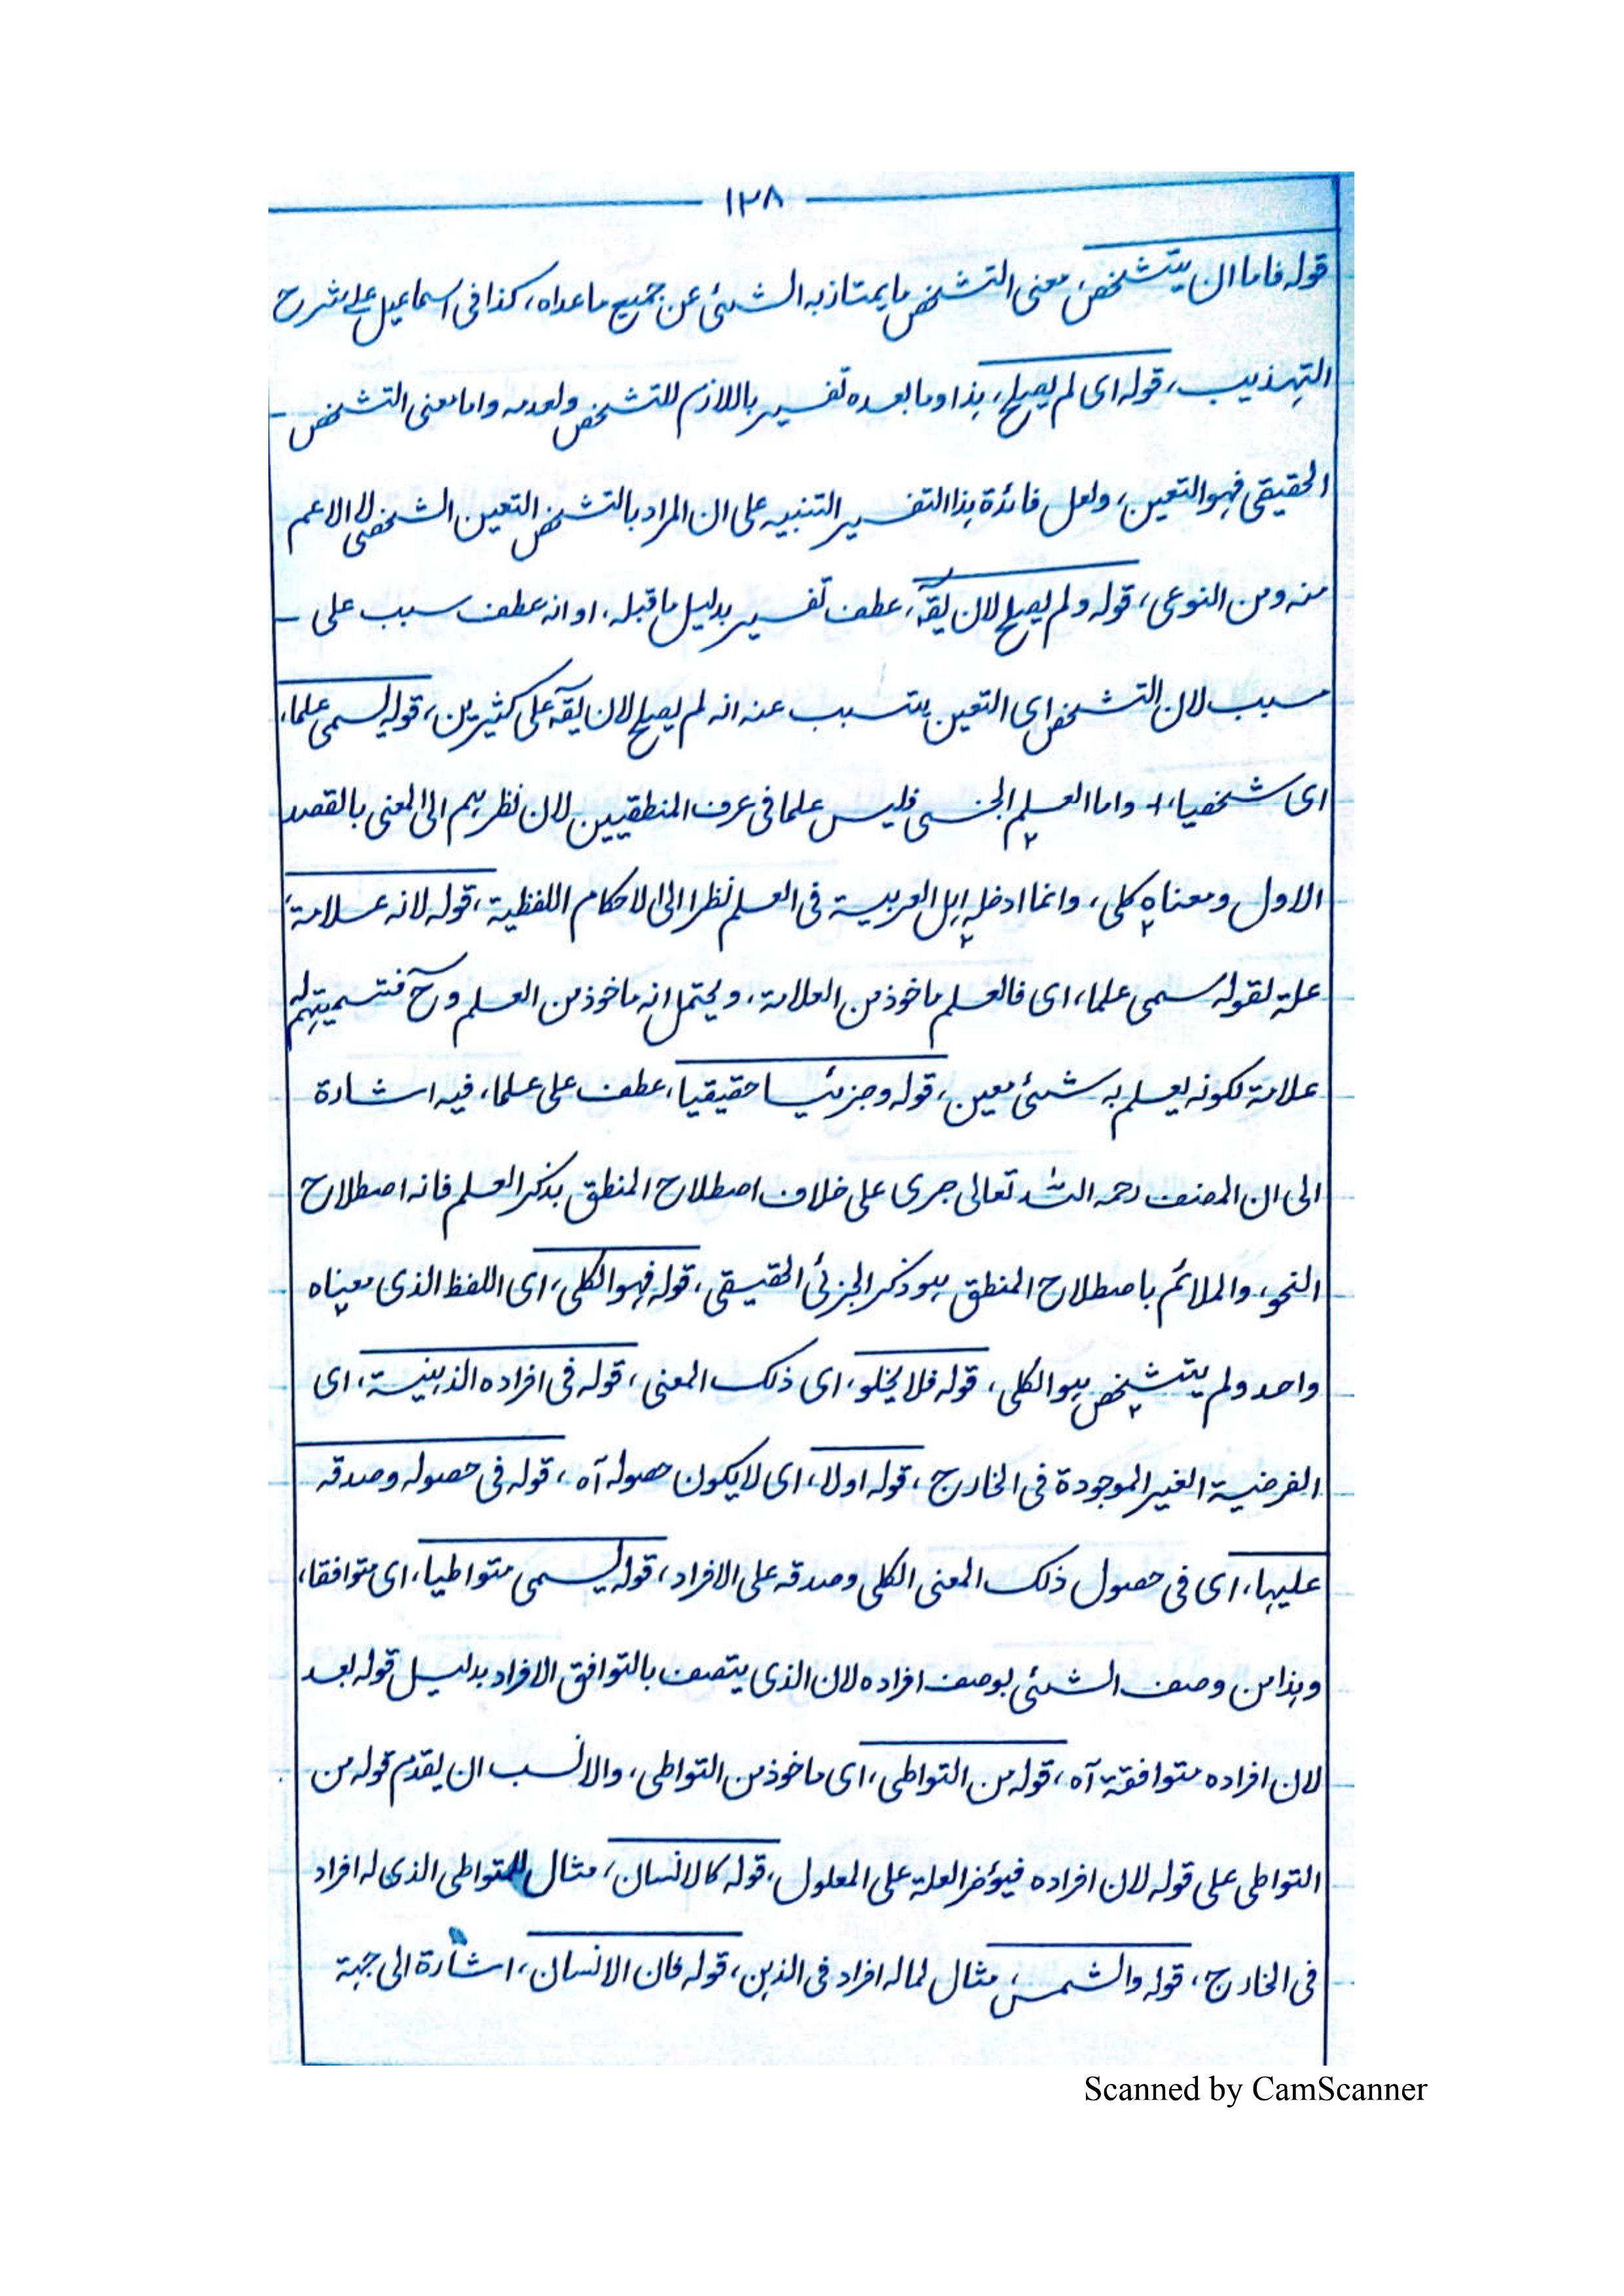 ١٢٨
قوله فاما ان يتشخص، معنى التشخص ما يمتاز به الشئ عن جميع ما عداه، كذا فى اسماعيل على شرح
التهذيب، قوله اى لم يصلح، هذا وما بعده تفسير باللازم للتشخص ولعدمه واما معنى التشخص
الحقيقى فهو التعين، ولعل فائدة هذا التفسير التنبيه على ان المراد بالتشخص التعين الشخصى لا الاعم
منه ومن النوعى، قوله ولم يصلح لان يقه، عطف تفسير بدليل ما قبله، او انه عطف سبب على
سبب لان التشخص اى التعين يتسبب عنه انه لم يصلح لان يقه على كثيرين، قوله يسمى علما،
اى شخصيا، واما العلم الجنسى فليس علما فى عرف المنطقيين لان نظرهم الى المعنى بالقصد
الاول ومعناه كلى، وانما ادخله اهل العربية فى العلم نظرا الى الاحكام اللفظية، قوله لانه علامة،
علة لقوله سمى علما، اى فالعلم ماخوذ من العلامة، ويحتمل انه ماخوذ من العلم وح فتسميتهم له
علامة لكونه يعلم به شئ معين، قوله وجزئيا حقيقيا، عطف على علما، فيه اشارة
الى ان المصنف رحمه الله تعالى جرى على خلاف اصطلاح المنطق بذكر العلم فانه اصطلاح
النحو، والملائم باصطلاح المنطق هو ذكر الجزئى الحقيقى، قوله فهو الكلى، اى اللفظ الذى معناه
واحد ولم يتشخص هو الكلى، قوله فلا يخلو، اى ذلك المعنى، قوله فى افراده الذهنية، اى
الفرضية الغير الموجودة فى الخارج، قوله اولا، اى لا يكون حصوله آه، قوله فى حصوله وصدقه
عليها، اى فى حصول ذلك المعنى الكلى وصدقه على الافراد، قوله يسمى متواطيا، اى متوافقا،
وهذا من وصف الشئ بوصف افراده لان الذى يتصف بالتوافق الافراد بدليل قوله بعد
لان افراده متوافقة آه، قوله من التواطى، اى ماخوذ من التواطى، والانسب ان يقدم قوله من
التواطى على قوله لان افراده فيؤخر العلة على المعلول، قوله كالانسان، مثال للمتواطى الذى له افراد
فى الخارج، قوله والشمس، مثال لما له افراد فى الذهن، قوله فان الانسان، اشارة الى جهة
Scanned by CamScanner